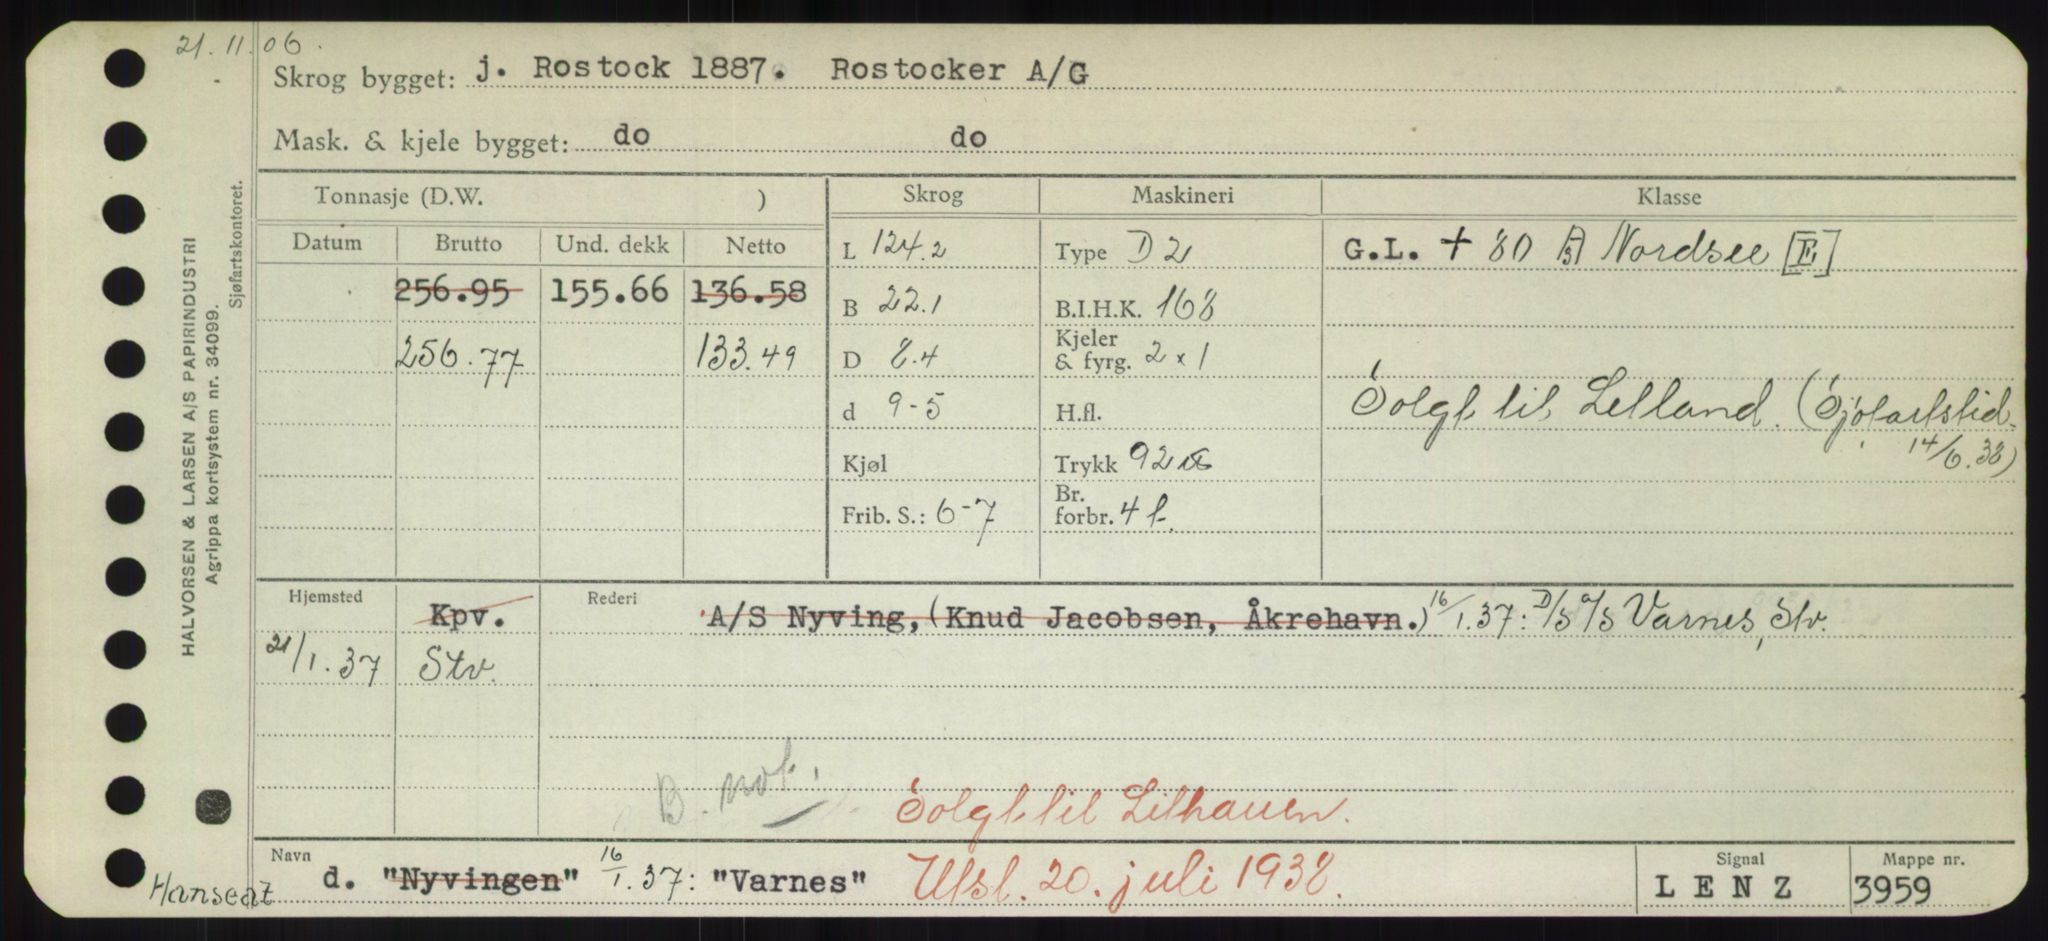 21.11.06.
Skrog bygget: j. Rostock 1887. Rostocker A/G
Mask. & kjele bygget: do do
Tonnasje (D.W. ) Skrog Maskineri Klasse
Datum Brutto Und. dekk Netto
256.95 155.66 136.58
256.77 133.49
L 124.2
B 22.1
D 8.4
d 9-5
Kjøl
Frib. S.: 6-7
Type D 2
B.I.H.K. 168
Kjeler
& fyrg. 2 x 1
H.fl.
Trykk 92
Br.
forbr. 4 t.
G.L. + 80 A Nordsee [E]
Solgt til Letland. (Sjøfartstid.
14/6.38)
Hjemsted Kpv. Rederi A/S Nyving, (Knud Jacobsen, Åkrehavn.) 16/1.37: D/S A/S Varnes, Stv.
21/1.37 Stv.
B. not.
Solgt til Lithauen.
Navn d. "Nyvingen" 16/1.37: "Varnes" Utsl. 20. juli 1938.
Signal LENZ
Mappe nr. 3959
Hanseat
HALVORSEN & LARSEN A/S PAPIRINDUSTRI
Agrippa kortsystem nr. 34099.
Sjøfartskontoret.